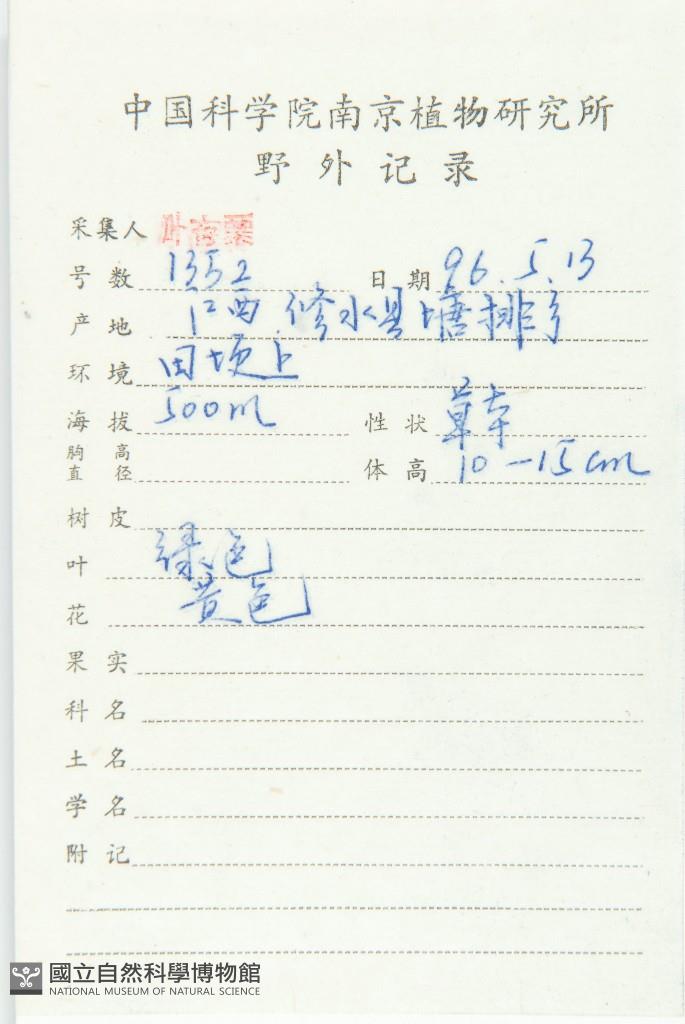 中国科学院南京植物研究所
野外记录
采集人
号数 1352 日期 96.5.13
产地 江西 修水县 塘排
环境 田埂上
海拔 500m 性状 草本
胸高直径 体高 10-15cm
树皮
叶 绿色
花 黄色
果实
科名
土名
学名
附记
國立自然科學博物館
NATIONAL MUSEUM OF NATURAL SCIENCE